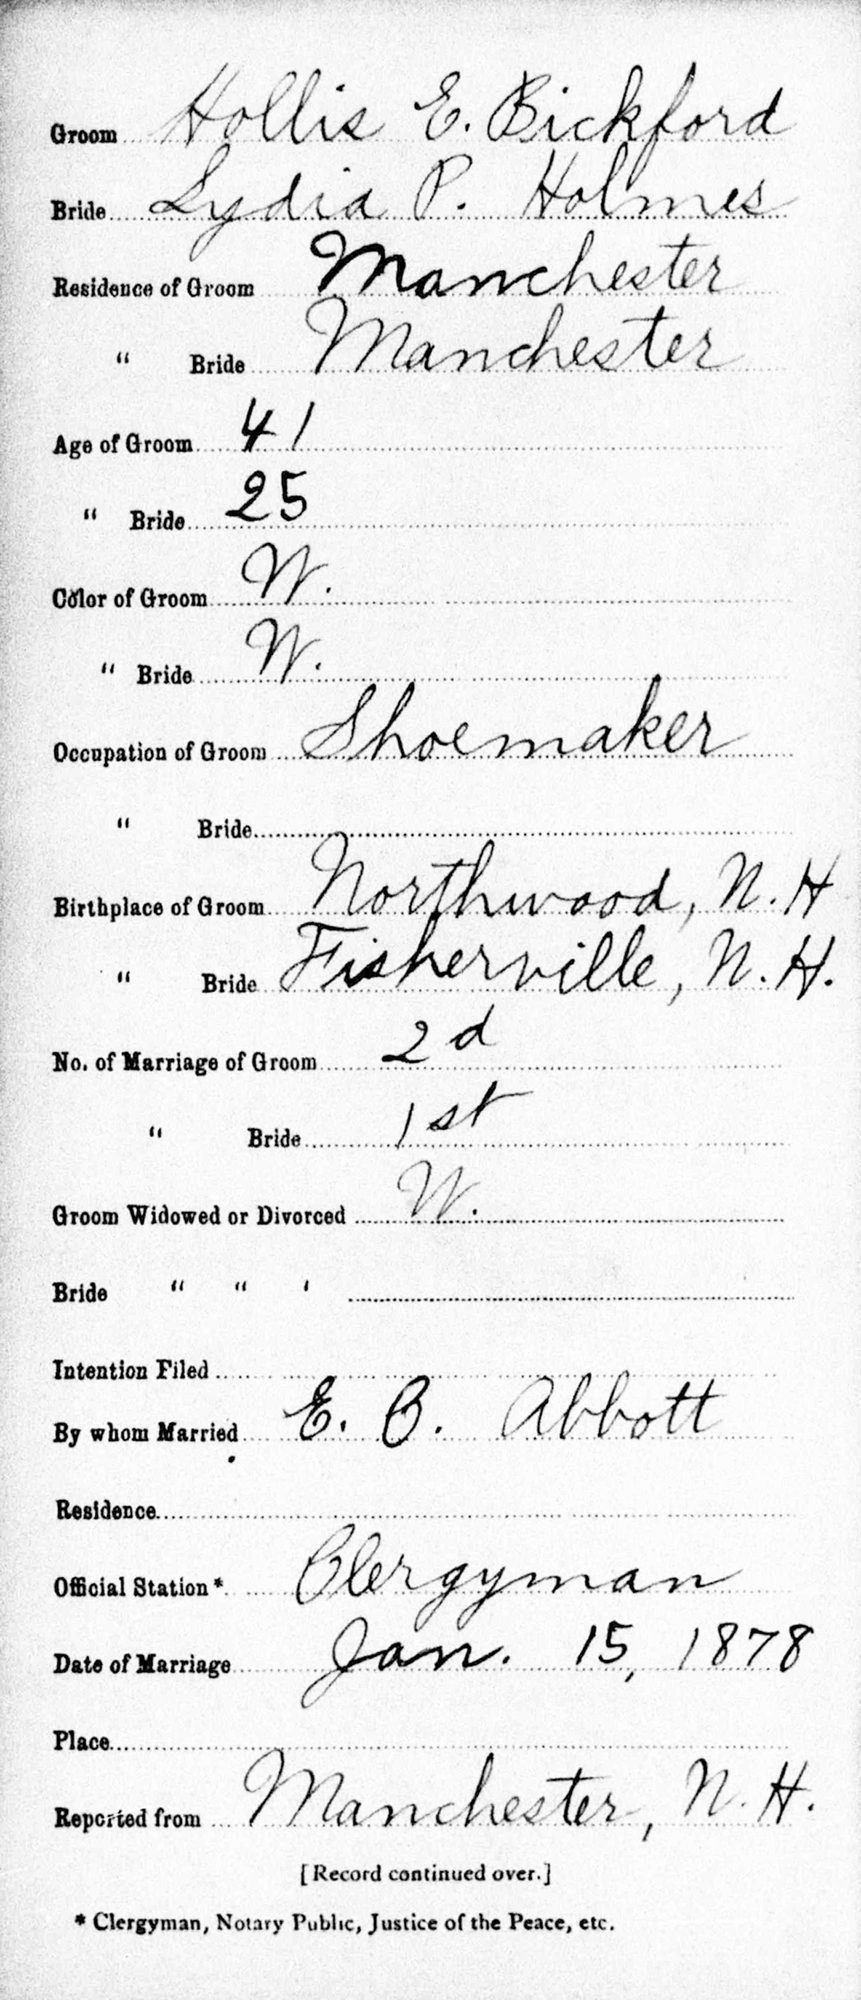 Groom Hollis E. Bickford
Bride Lydia P. Holmes
Residence of Groom Manchester
" Bride Manchester
Age of Groom 41
" Bride 25
Color of Groom W.
" Bride W.
Occupation of Groom Shoemaker
" Bride
Birthplace of Groom Northwood, N.H
" Bride Fisherville, N.H.
No. of Marriage of Groom 2d
" Bride 1st
Groom Widowed or Divorced W.
Bride " " '
Intention Filed
By whom Married E. B. Abbott
Residence
Official Station* Clergyman
Date of Marriage Jan. 15, 1878
Place
Reported from Manchester, N.H.
[Record continued over.]
* Clergyman, Notary Public, Justice of the Peace, etc.